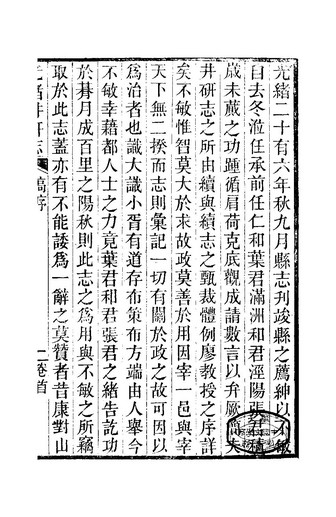 光緒二十有六年秋九月縣志刊竣縣之薦紳以不敏
曰去冬涖任承前任仁和葉君滿洲和君涇陽張君積
歲未蕆之功踵循肩荷克底觀成請數言以弁厥簡夫
井研志之所由續與續志之甄裁體例廖教授之序詳
矣不敏惟智莫大於求故政莫善於用因宰一邑與宰
天下無二揆而志則彙記一切有關於政之故可因以
爲治者也識大識小胥有道存布策布方端由人舉今
不敏幸藉都人士之力竟葉君和君張君之緒告訖功
於朞月成百里之陽秋則此志之爲用與不敏之所竊
取於此志蓋亦有不能諉爲一辭之莫贊者昔康對山
井研志
序
二
卷首